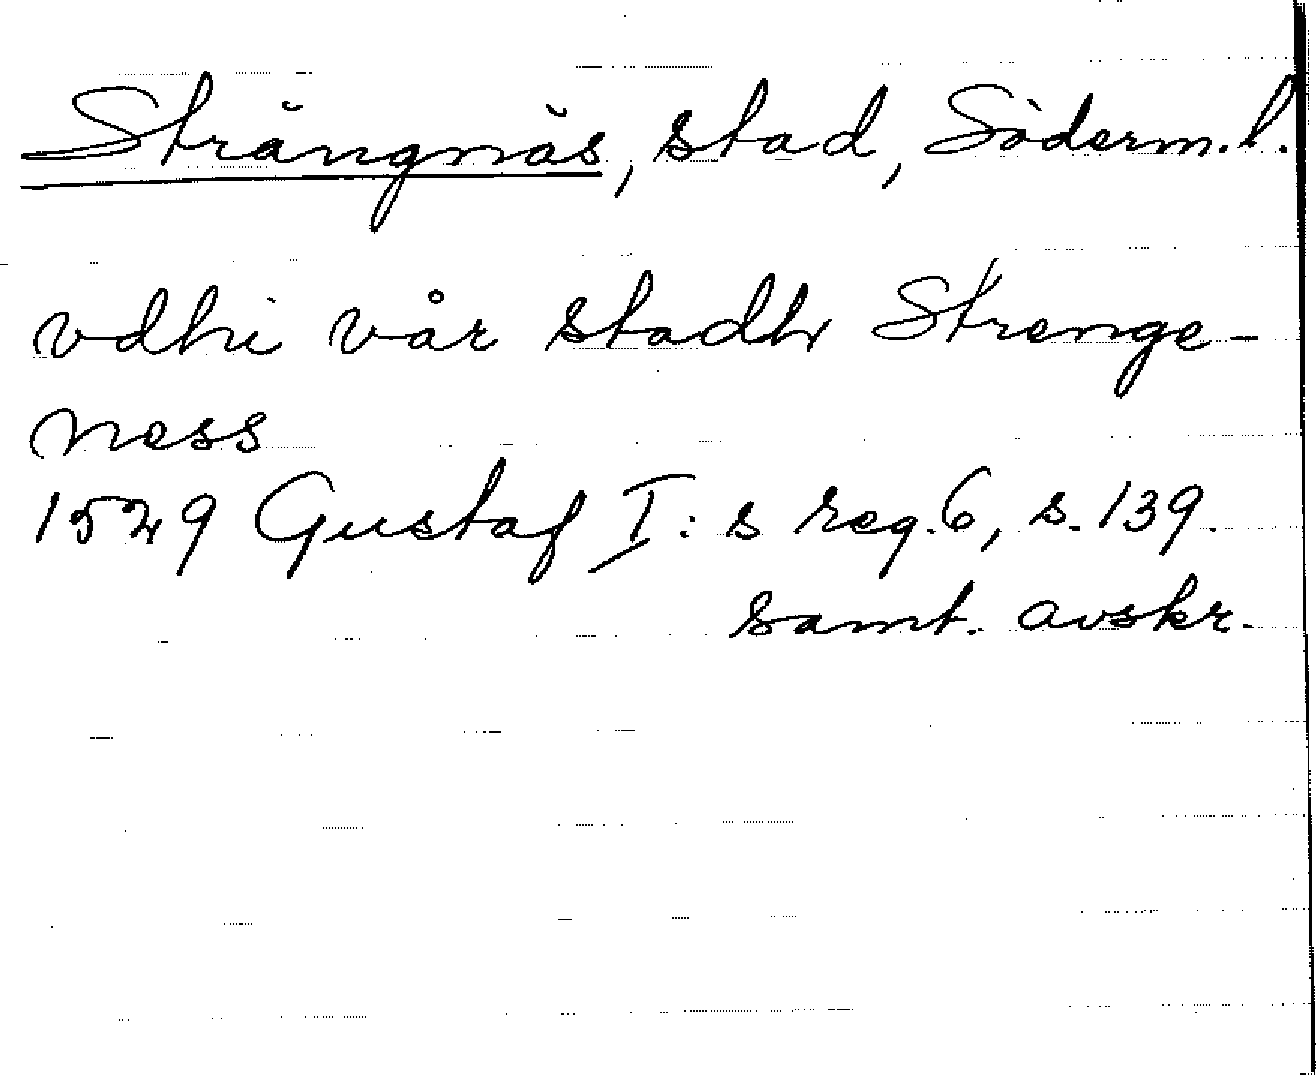 Strängnäs, stad, Söderm.l.
vdhi vår stadh Strenge-
ness
1529 Gustaf I:s reg.6, s.139.
samt. avskr.